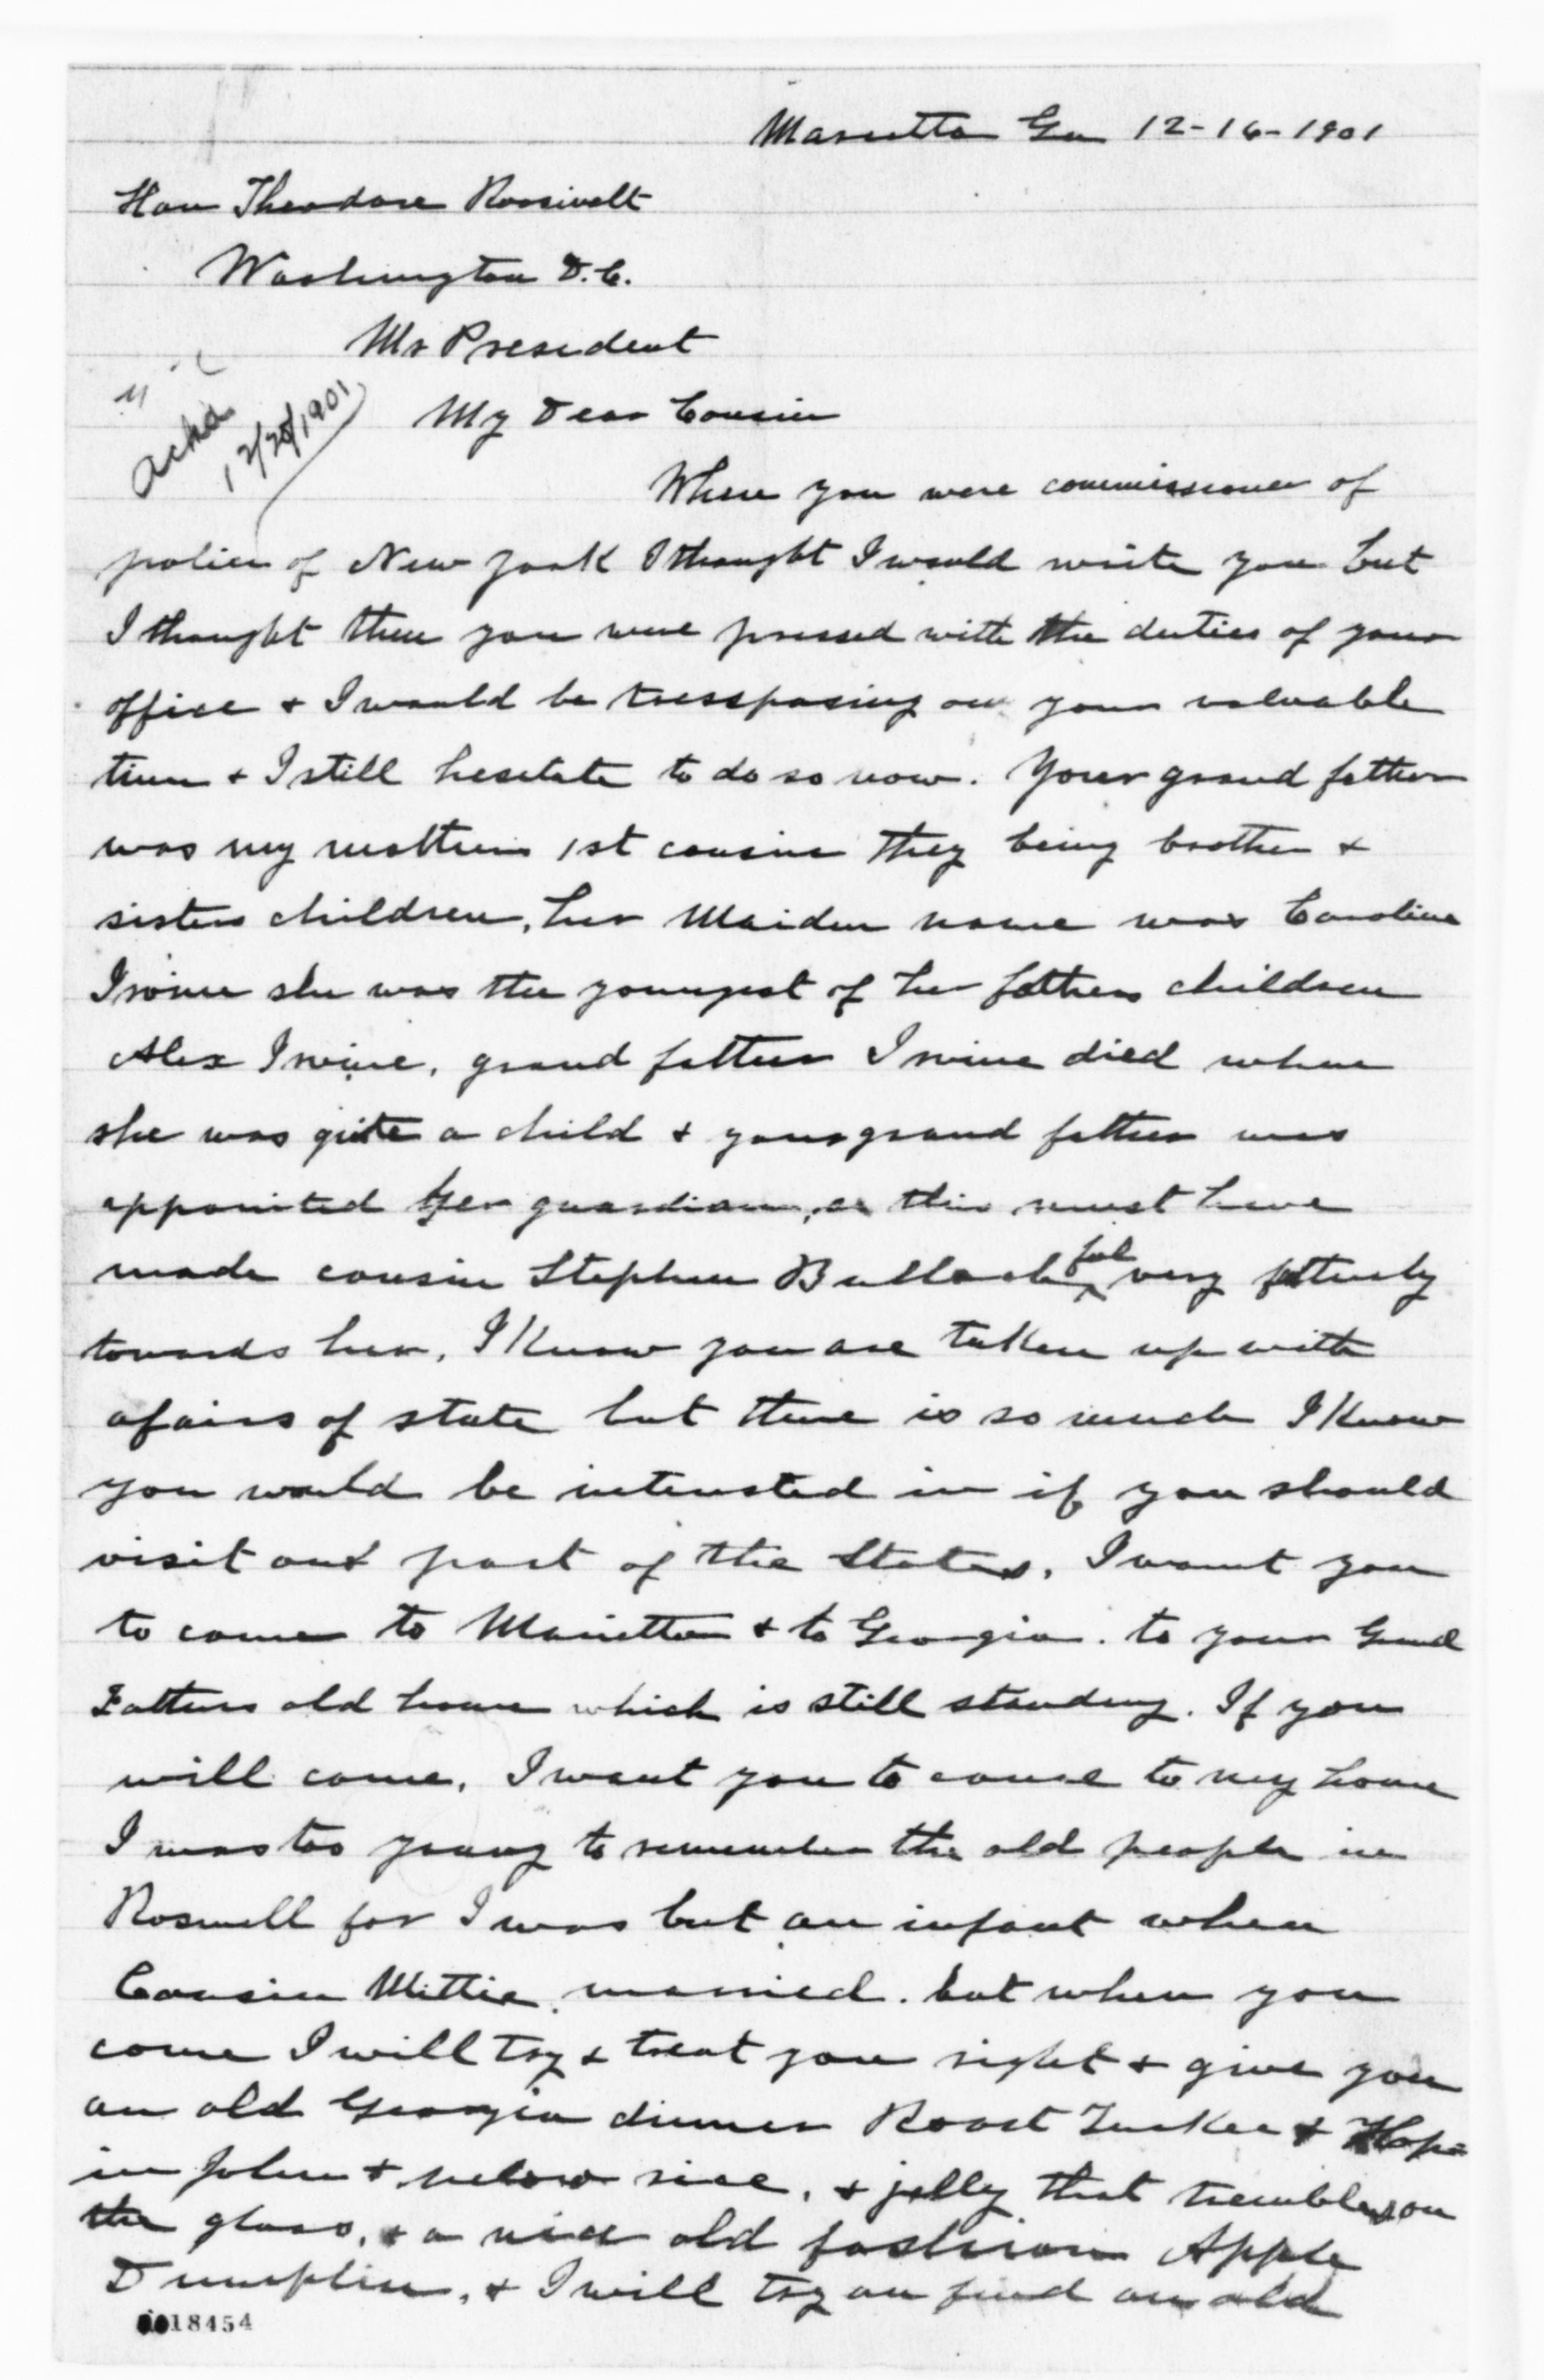 Marietta Ga 12-16-1901
Hon Theodore Roosivelt
Washington D.C.
Mr President
Ackd
12/28/1901
My Dear Cousin
When you were commissioner of
police of New York I thought I would write you but
I thought then you were pressed with the duties of your
office + I would be tresspasing on your valuable
time + I still hesitate to do so now. Your grand father
was my mothers 1st cousin they being brother +
sisters children, her Maiden name was Caroline
Irvine she was the youngest of her fathers children
Alex Irvine, grand father Irvine died when
she was quite a child + your grand father was
appointed her guardian, as this must have
made cousin Stephen Bulloch feel very fatherly
towards her, I Know you are taken up with
afairs of state but there is so much I Know
you would be interested in if you should
visit our part of the States, I want you
to come to Marietta + to Georgia. to your Grand
Fathers old home which is still standing. If you
will come, I want you to come to my home
I was too young to remember the old people in
Roswell for I was but an infant when
Cousin Mittie married. but when you
come I will try + treat you right + give you
an old Georgia dinner Roast Turkee + Hop-
in John + rice, + jelly that trembles on
the glass, + a nice old fashion Apple
Dumplin, + I will try an find an old
18454